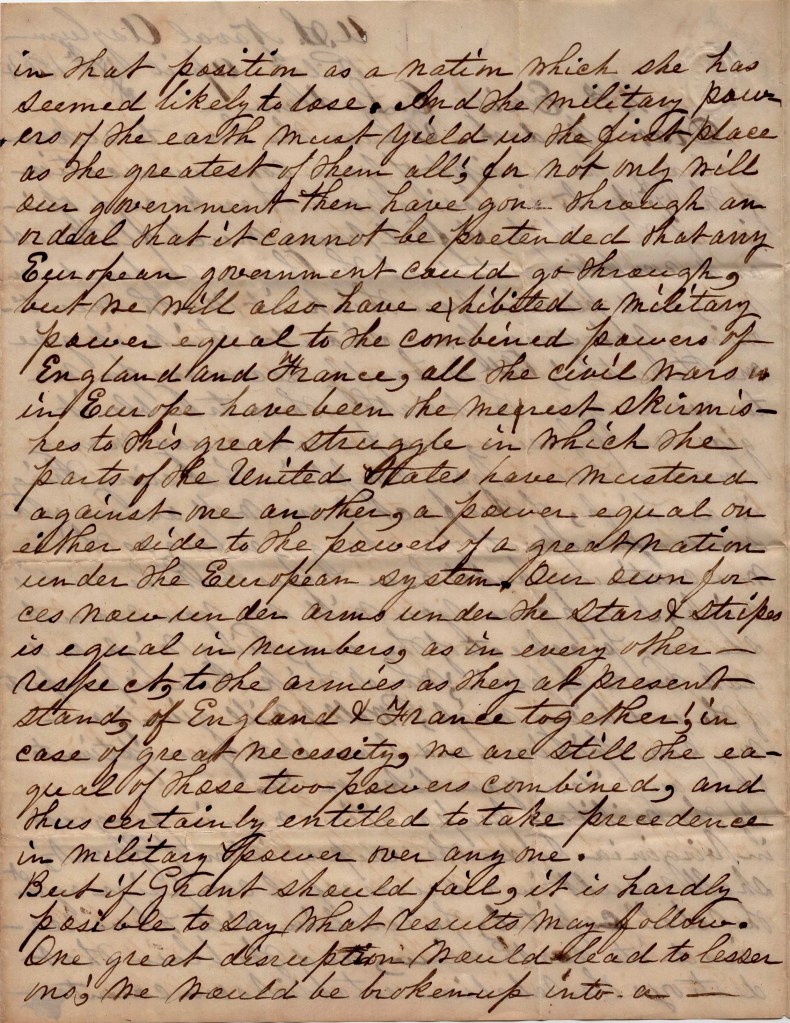 in that position as a nation which she has
seemed likely to lose. And the military pow-
ers of the earth must yield us the first place
as the greatest of them all; for not only will
our government then have gone through an
ordeal that it cannot be pretended that any
European government could go through,
but we will also have exhibited a military
power equal to the combined powers of
England and France, all the civil wars
in Europe have been the merest skirmis-
hes to this great struggle in which the
parts of the United States have mustered
against one another, a power equal on
either side to the powers of a great nation
under the European system. Our own for-
ces now under arms under the stars & stripes
is equal in numbers, as in every other —
respect, to the armies as they at present
stand, of England & France together; in
case of great necessity, we are still the ea-
qual of those two powers combined, and
thus certainly entitled to take precedence
in military power over any one.
But if Grant should fail, it is hardly
posible to say what results may follow.
One great disruption would lead to lesser
ons; we would be broken up into a —